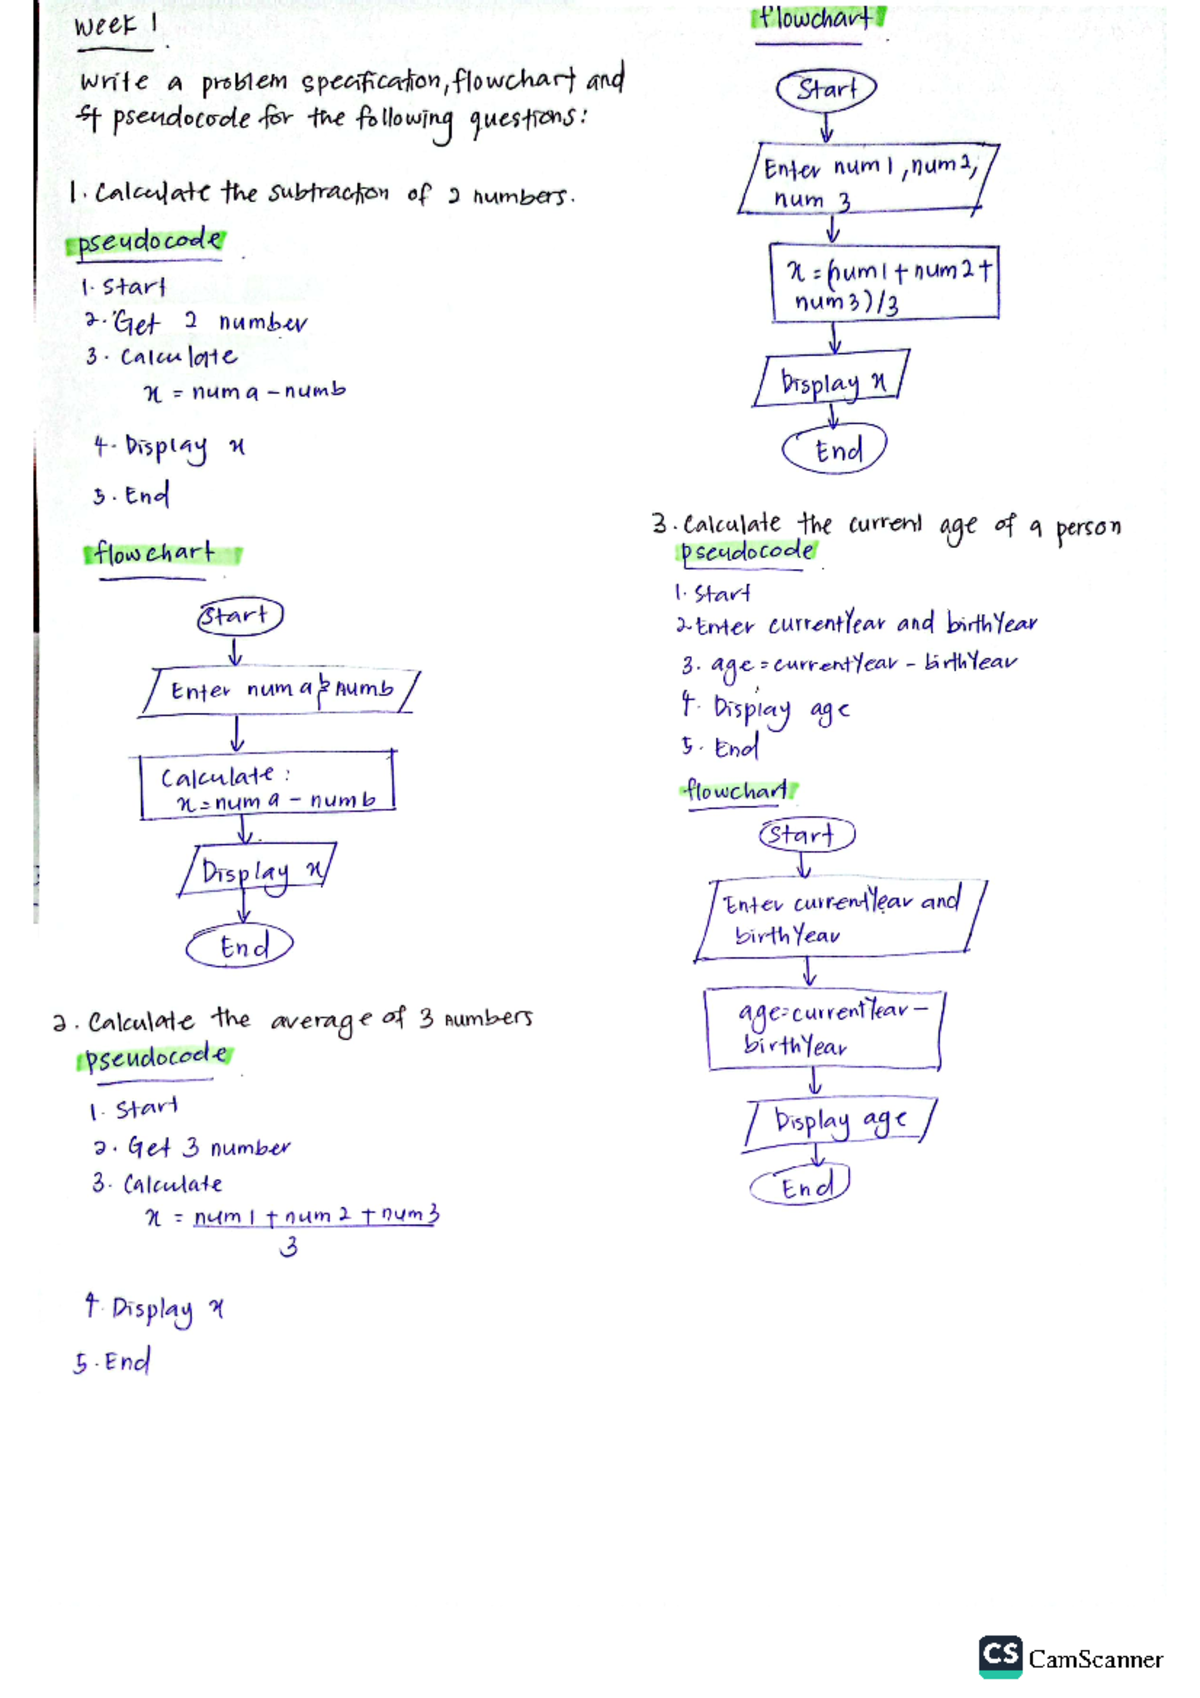 Week 1
Write a problem specification, flowchart and
pseudocode for the following questions:
1. Calculate the subtraction of 2 numbers.
pseudocode
1. Start
2. Get 2 number
3. Calculate
x = num a - num b
4. Display x
5. End
flowchart
Start
Enter num a & num b
Calculate:
x = num a - num b
Display x
End
2. Calculate the average of 3 numbers
pseudocode
1. Start
2. Get 3 number
3. Calculate
x = num 1 + num 2 + num 3
3
4. Display x
5. End
flowchart
Start
Enter num 1, num 2,
num 3
x = (num 1 + num 2 +
num 3) / 3
Display x
End
3. Calculate the current age of a person
pseudocode
1. Start
2. Enter currentYear and birthYear
3. age = currentYear - birthYear
4. Display age
5. End
flowchart
Start
Enter currentYear and
birthYear
age = currentYear -
birthYear
Display age
End
CS CamScanner